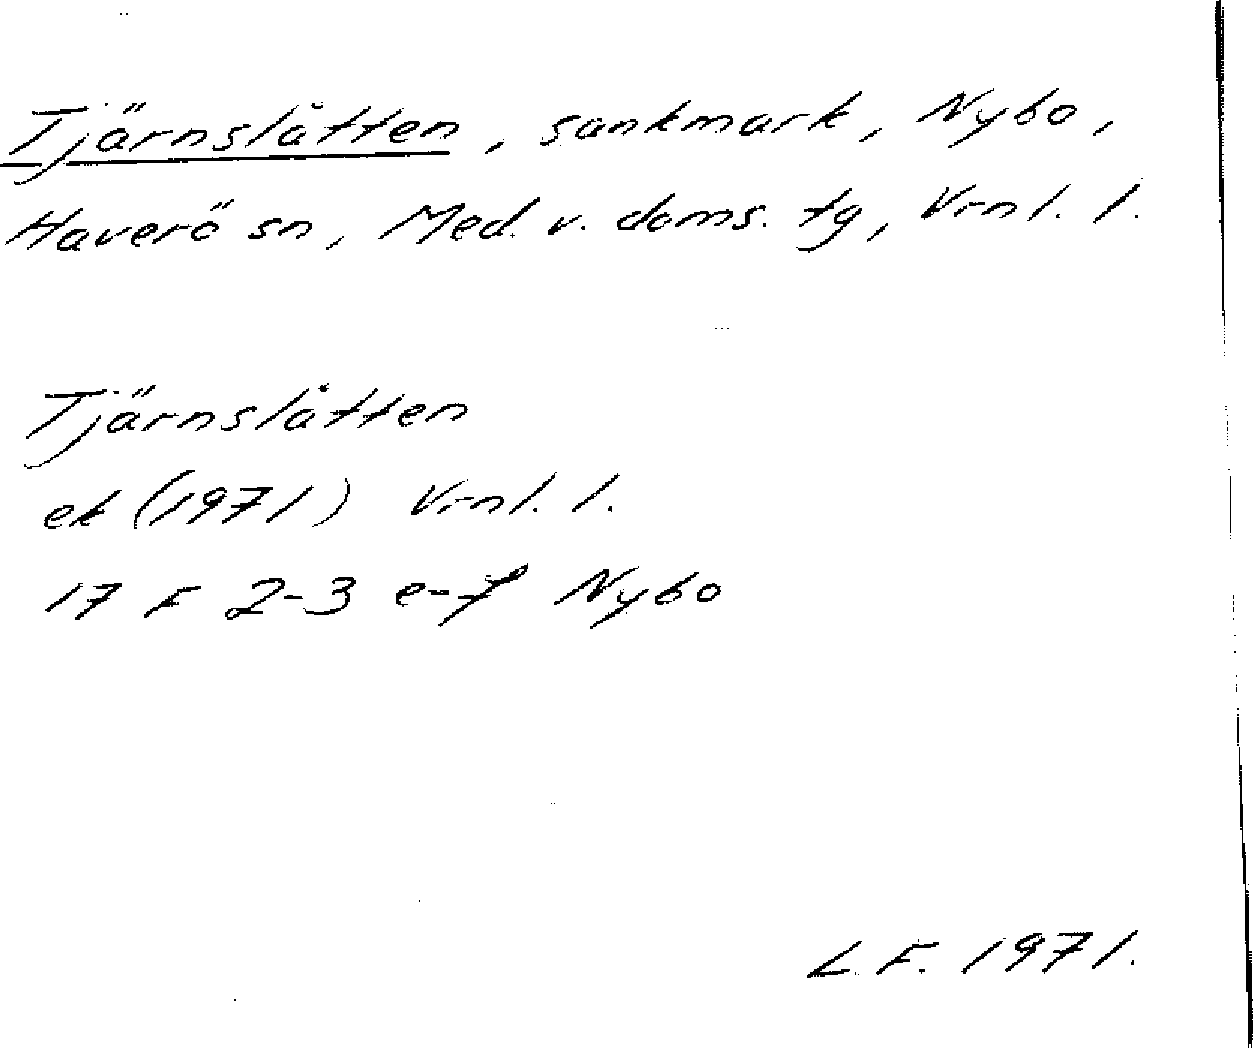 Tjärnslåtten, sankmark, Nybo,
Haverö sn, Med. v. doms. tg, Vrnl. l.
Tjärnslåtten
ek (1971) Vrnl. l.
17 F 2-3 e-f Nybo
L. F. 1971.